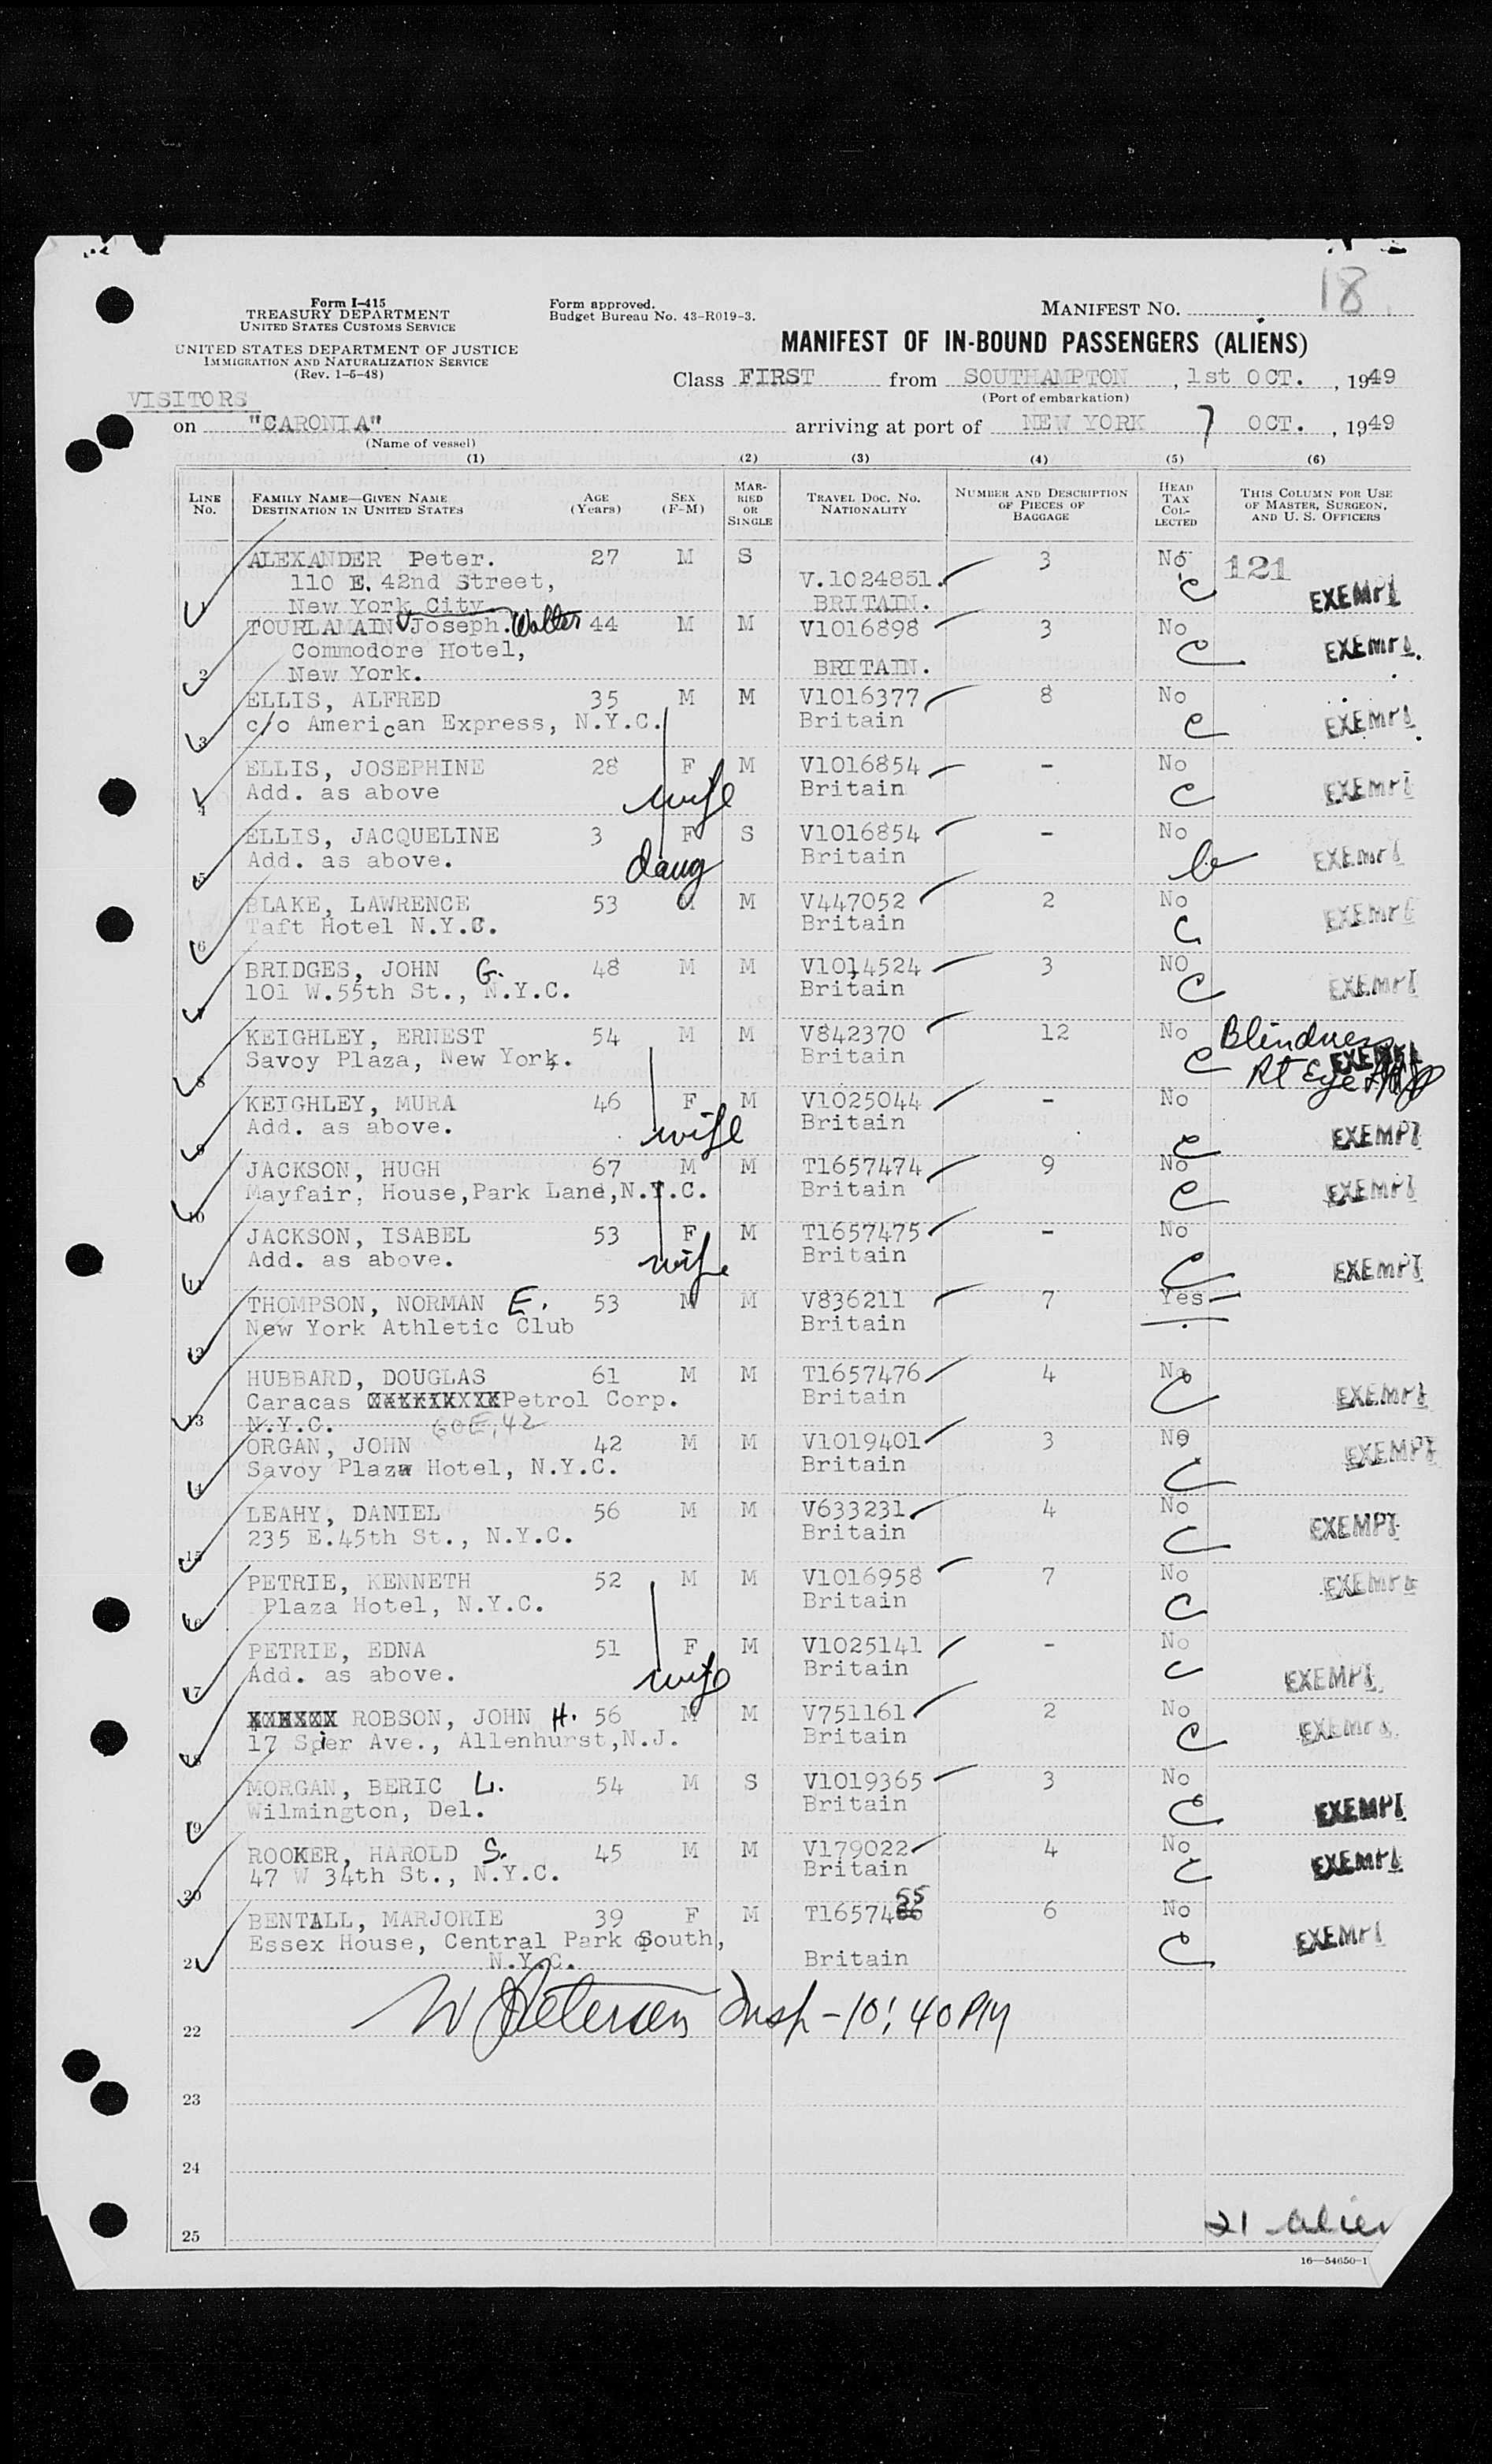 18
Form I-415
TREASURY DEPARTMENT
UNITED STATES CUSTOMS SERVICE
Form approved.
Budget Bureau No. 43-R019-3.
MANIFEST NO.
UNITED STATES DEPARTMENT OF JUSTICE
IMMIGRATION AND NATURALIZATION SERVICE
(Rev. 1-5-48)
MANIFEST OF IN-BOUND PASSENGERS (ALIENS)
Class FIRST from SOUTHAMPTON, 1st OCT., 1949
(Port of embarkation)
VISITORS
on "CARONIA" arriving at port of NEW YORK 7 OCT., 1949
(Name of vessel)
(1) (2) (3) (4) (5) (6)
LINE No. FAMILY NAME—GIVEN NAME DESTINATION IN UNITED STATES AGE (Years) SEX (F-M) MARRIED OR SINGLE TRAVEL DOC. NO. NATIONALITY NUMBER AND DESCRIPTION OF PIECES OF BAGGAGE HEAD TAX COLLECTED THIS COLUMN FOR USE OF MASTER, SURGEON, AND U. S. OFFICERS
1 ALEXANDER Peter. 27 M S V.1024851. 3 No C 121 EXEMPT
110 E. 42nd Street, BRITAIN.
New York City
2 TOURLAMAIN Joseph. Walter 44 M M V1016898 3 No C EXEMPT
Commodore Hotel, BRITAIN.
New York.
3 ELLIS, ALFRED 35 M M V1016377 8 No C EXEMPT
c/o American Express, N.Y.C. Britain
4 ELLIS, JOSEPHINE 28 F M V1016854 - No C EXEMPT
Add. as above wife Britain
5 ELLIS, JACQUELINE 3 F S V1016854 - No EXEMPT
Add. as above. daug Britain
6 BLAKE, LAWRENCE 53 M V447052 2 No C EXEMPT
Taft Hotel N.Y.C. Britain
7 BRIDGES, JOHN G. 48 M M V1014524 3 NO C EXEMPT
101 W.55th St., N.Y.C. Britain
8 KEIGHLEY, ERNEST 54 M M V842370 12 No C Blindness Rt Eye EXEMPT
Savoy Plaza, New York. Britain
9 KEIGHLEY, MURA 46 F M V1025044 - No C EXEMPT
Add. as above. wife Britain
10 JACKSON, HUGH 67 M M T1657474 9 No C EXEMPT
Mayfair, House,Park Lane,N.Y.C. Britain
11 JACKSON, ISABEL 53 F M T1657475 - No C EXEMPT
Add. as above. wife Britain
12 THOMPSON, NORMAN E. 53 M M V836211 7 Yes
New York Athletic Club Britain
13 HUBBARD, DOUGLAS 61 M M T1657476 4 No C EXEMPT
Caracas Petrol Corp. Britain
N.Y.C. 60 E. 42
14 ORGAN, JOHN 42 M M V1019401 3 No C EXEMPT
Savoy Plaza Hotel, N.Y.C. Britain
15 LEAHY, DANIEL 56 M M V633231 4 No C EXEMPT
235 E.45th St., N.Y.C. Britain
16 PETRIE, KENNETH 52 M M V1016958 7 No C EXEMPT
Plaza Hotel, N.Y.C. Britain
17 PETRIE, EDNA 51 F M V1025141 - No C EXEMPT
Add. as above. wife Britain
18 ROBSON, JOHN H. 56 M M V751161 2 No C EXEMPT
17 Spier Ave., Allenhurst,N.J. Britain
19 MORGAN, BERIC L. 54 M S V1019365 3 No C EXEMPT
Wilmington, Del. Britain
20 ROOKER, HAROLD S. 45 M M V179022 4 No C EXEMPT
47 W 34th St., N.Y.C. Britain
21 BENTALL, MARJORIE 39 F M T1657455 6 No C EXEMPT
Essex House, Central Park South,
N.Y.C. Britain
W Petersen Insp - 10:40 PM
22
23
24
21 alien
25
16—54650-1